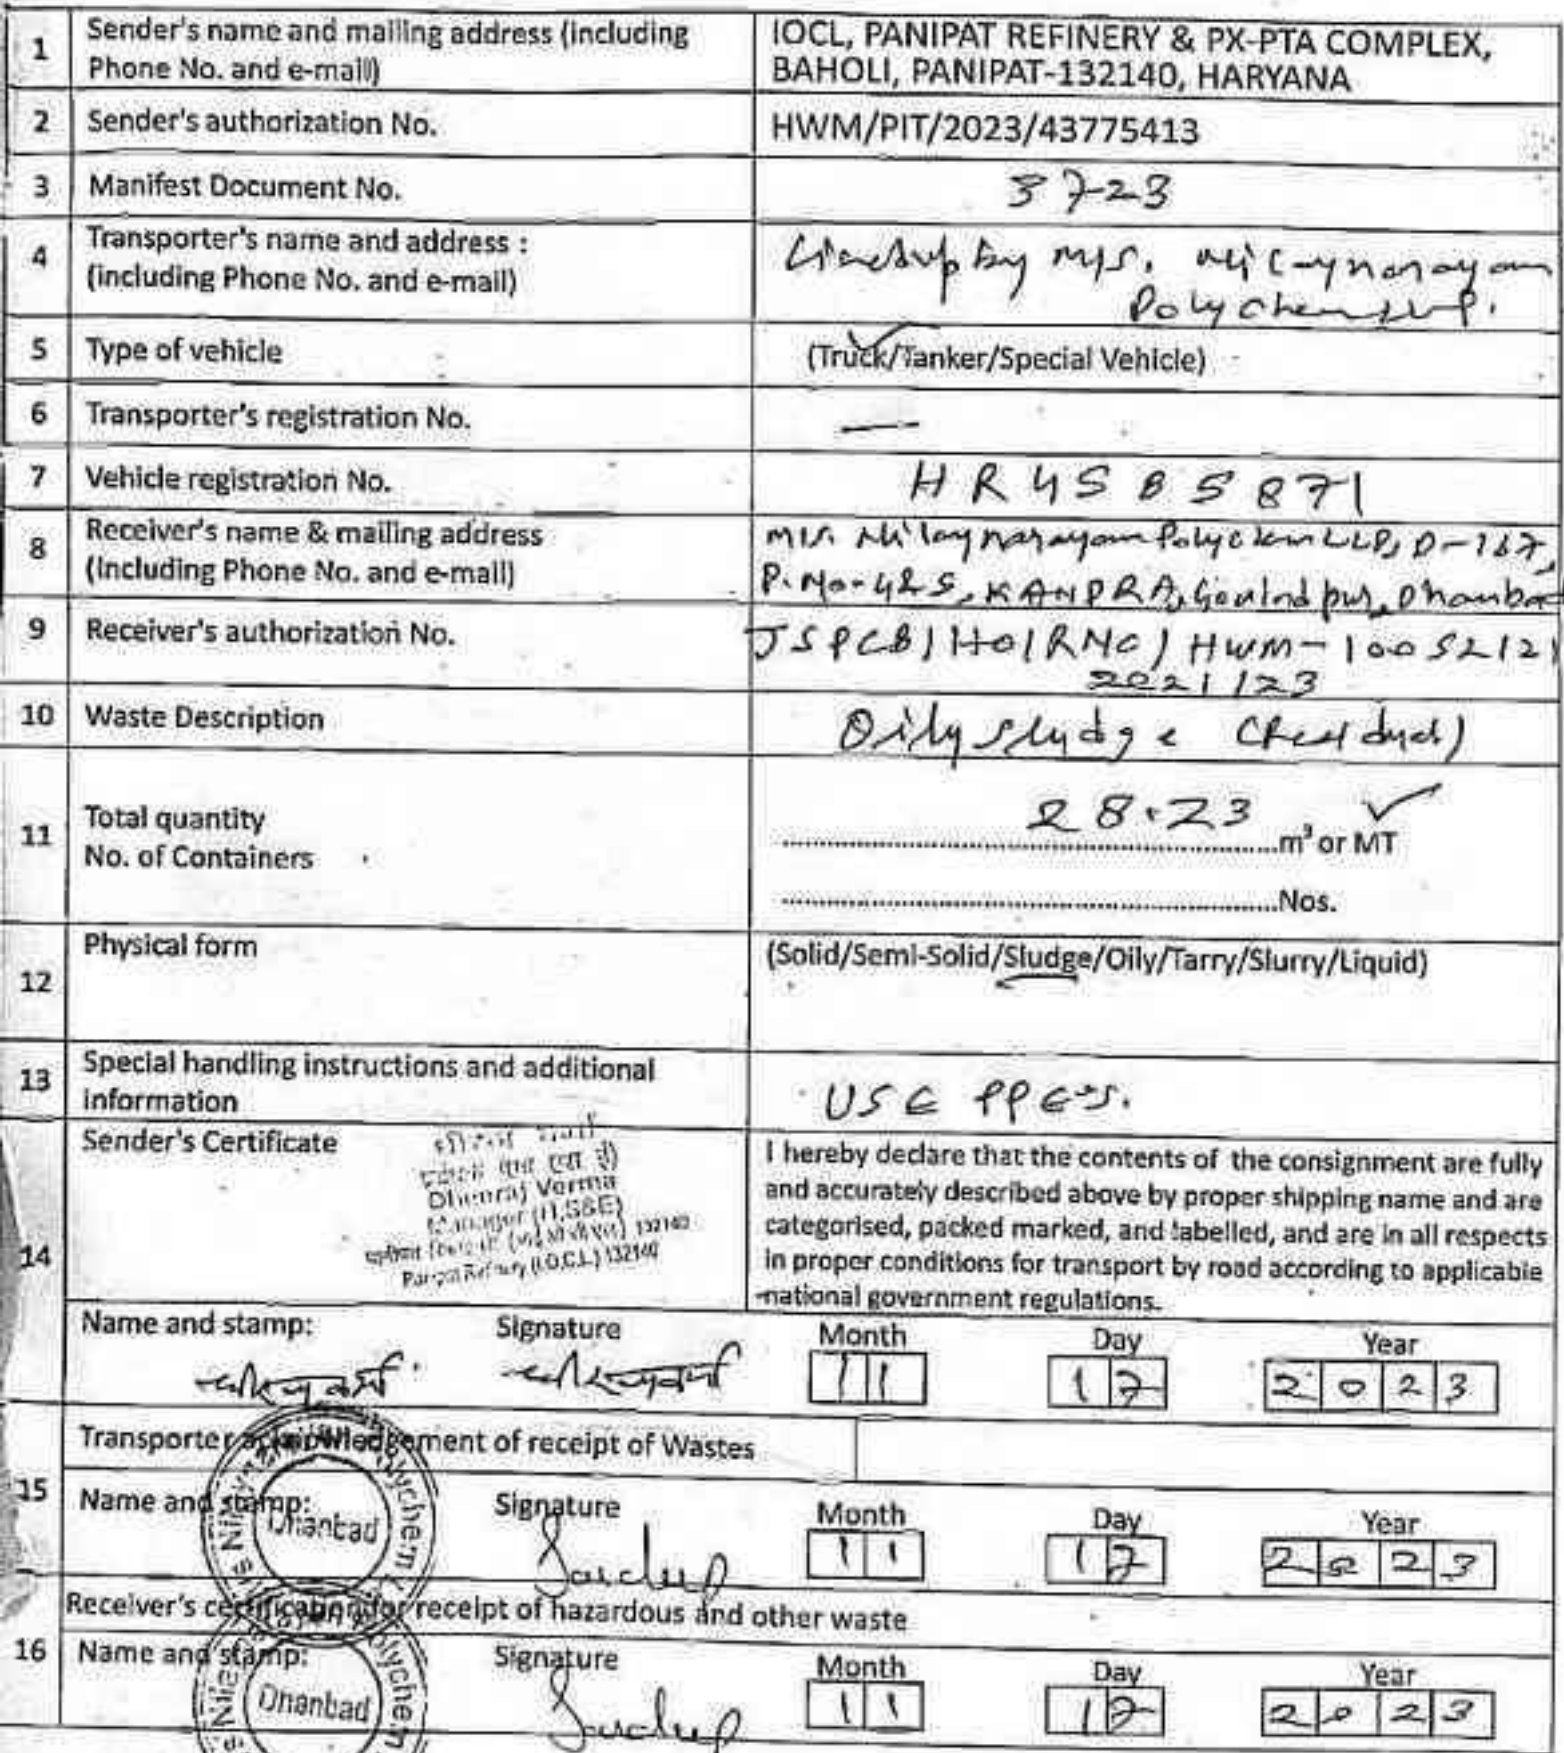 1 Sender's name and mailing address (including Phone No. and e-mail) IOCL, PANIPAT REFINERY & PX-PTA COMPLEX, BAHOLI, PANIPAT-132140, HARYANA
2 Sender's authorization No. HWM/PIT/2023/43775413
3 Manifest Document No. 3723
4 Transporter's name and address : (including Phone No. and e-mail) by M/s. Polychem LLP.
5 Type of vehicle (Truck/Tanker/Special Vehicle)
6 Transporter's registration No. —
7 Vehicle registration No. HR45B5871
8 Receiver's name & mailing address (including Phone No. and e-mail) M/s. Nilaynarayan Polychem LLP, D-167, P.No-425, KANDRA, Govindpur, Dhanbad
9 Receiver's authorization No. JSPCB/HO/RNC/HWM-1005212/ 2021/23
10 Waste Description Oily sludge (Residual)
11 Total quantity 28.23 m³ or MT ✓
No. of Containers ..........Nos.
12 Physical form (Solid/Semi-Solid/Sludge/Oily/Tarry/Slurry/Liquid)
13 Special handling instructions and additional information USE PPE's.
14 Sender's Certificate
Dhenraj Verma
Manager (H,S&E)
132140
Panipat Refinery (I.O.C.L.) 132140
I hereby declare that the contents of the consignment are fully
and accurately described above by proper shipping name and are
categorised, packed marked, and labelled, and are in all respects
in proper conditions for transport by road according to applicable
national government regulations.
Name and stamp: Signature Month Day Year
11 17 2023
15 Transporter acknowledgement of receipt of Wastes
Name and stamp: Signature Month Day Year
Dhanbad Sandeep 11 17 2023
16 Receiver's certification for receipt of hazardous and other waste
Name and stamp: Signature Month Day Year
Dhanbad Sandeep 11 17 2023